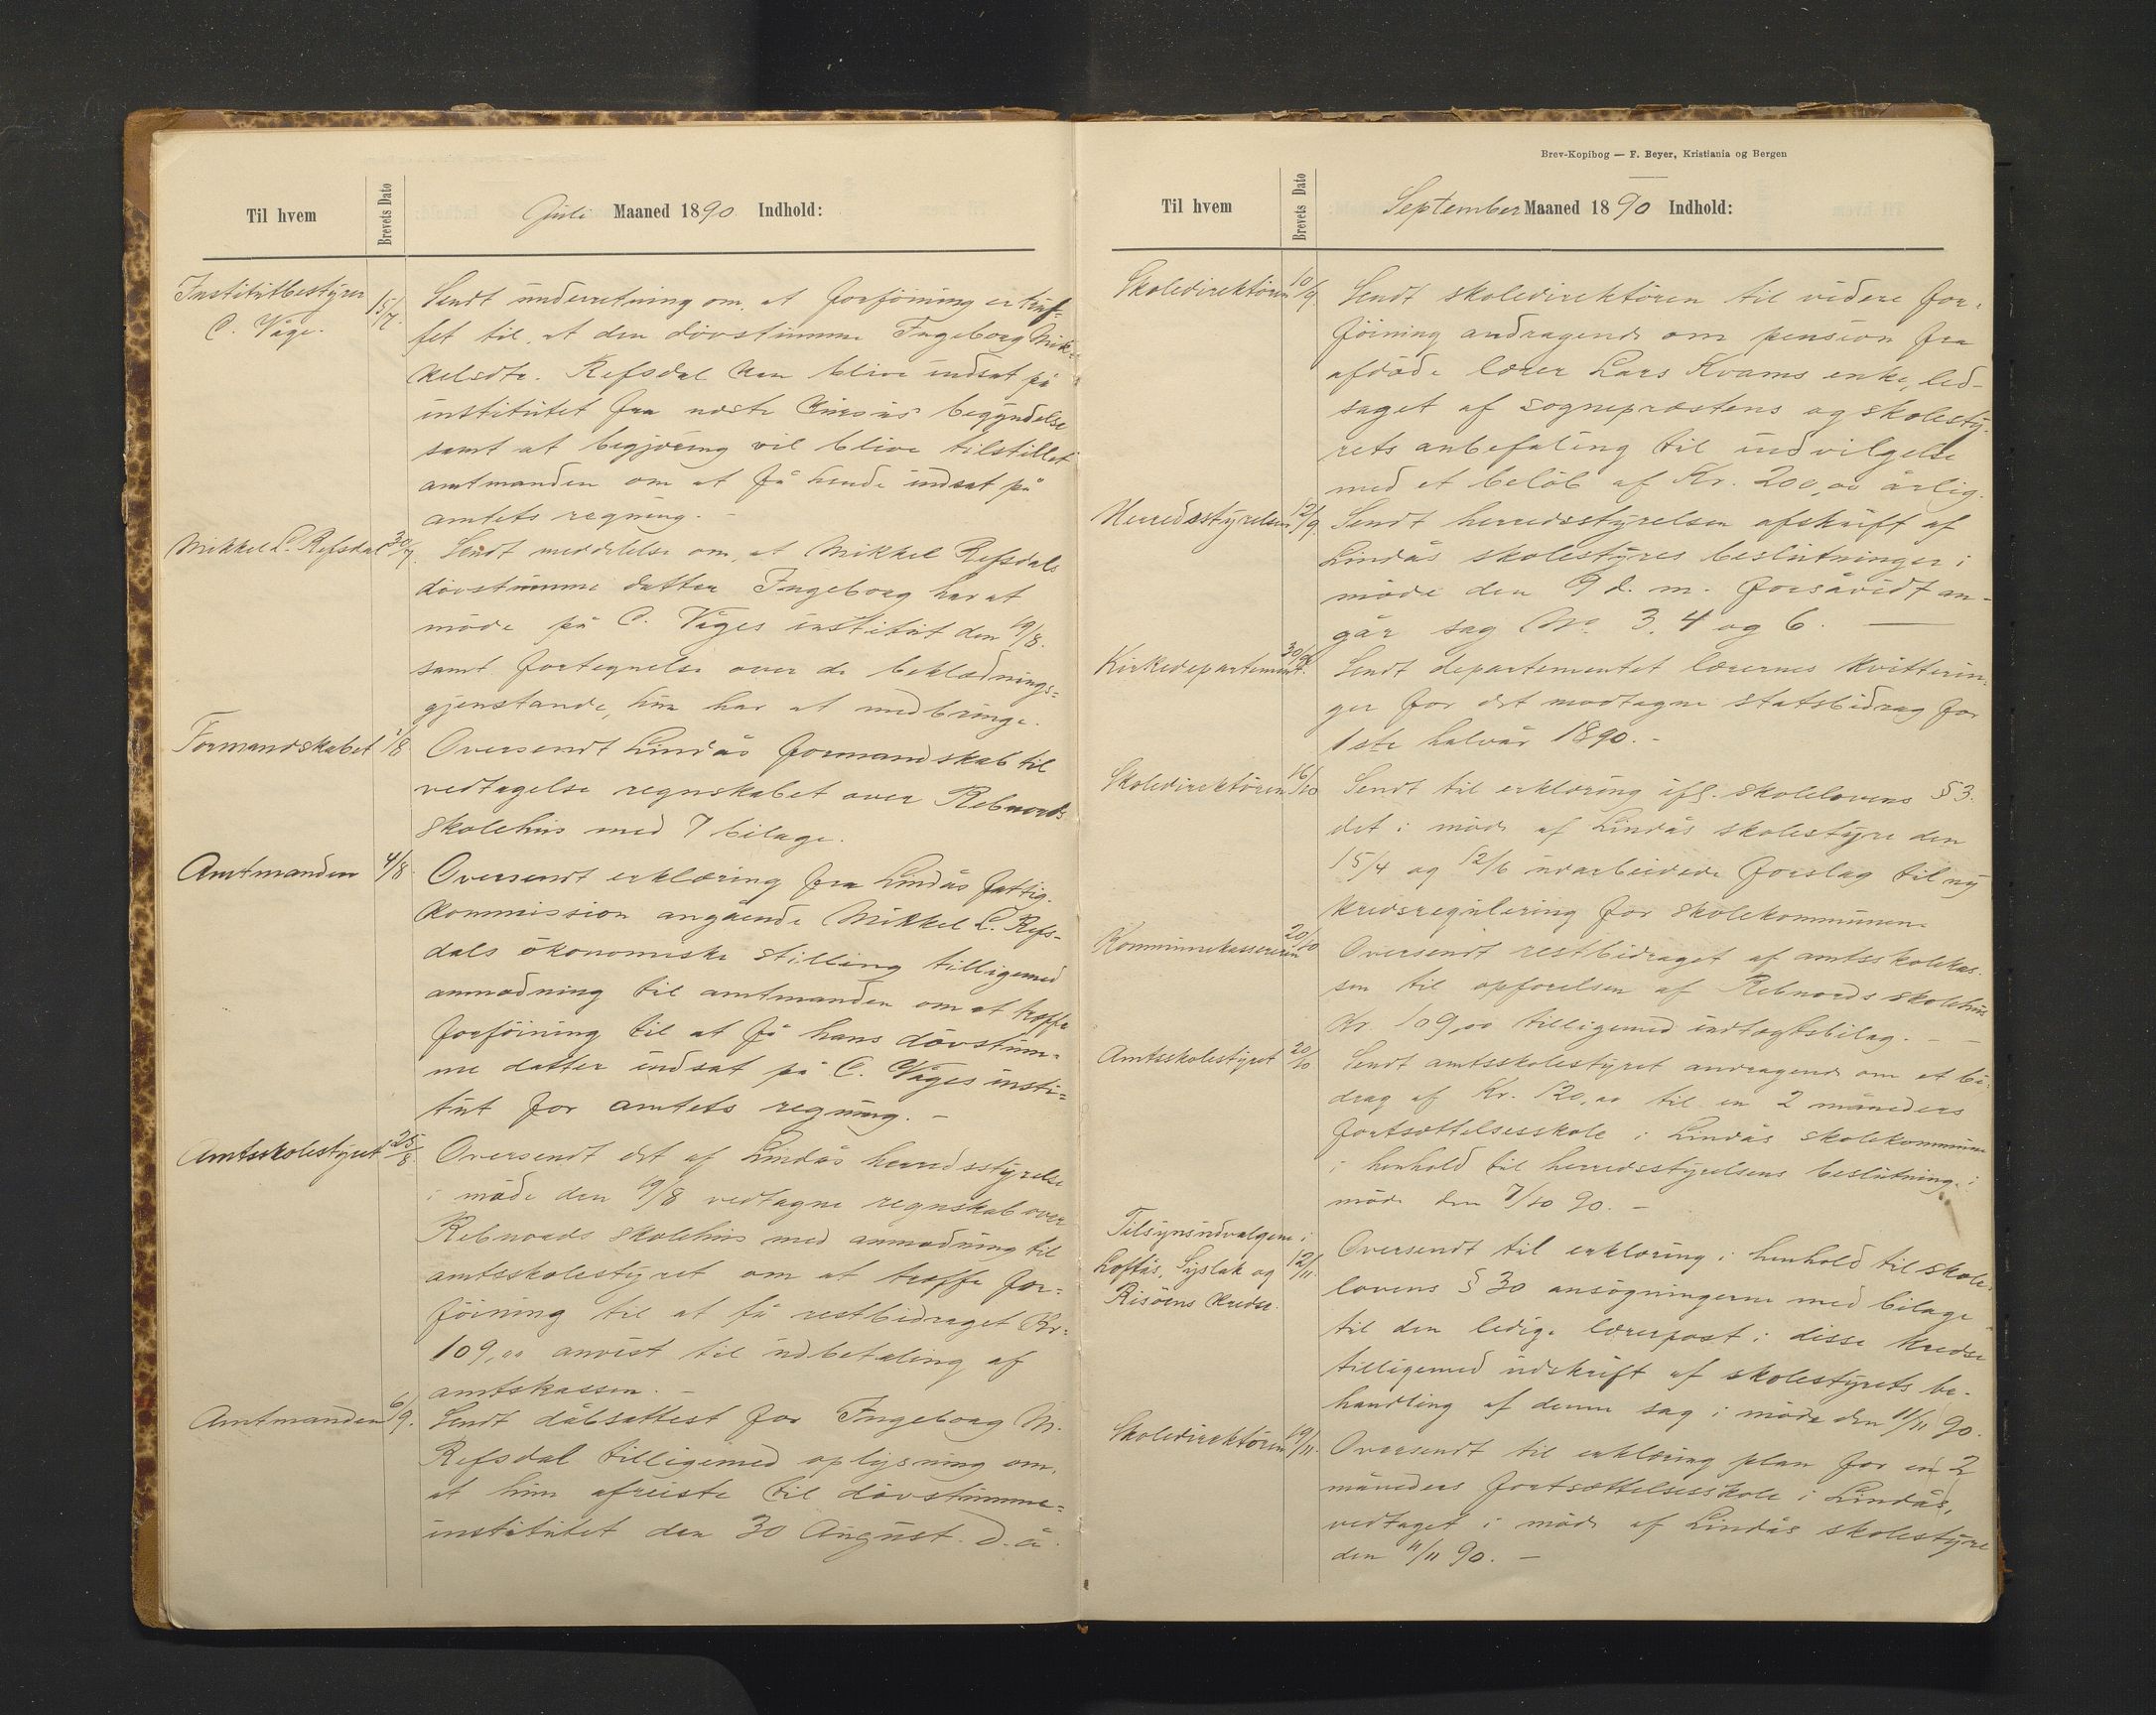 Til hvem
Brevets Dato
Juli Maaned 1890 Indhold:
Institutbestyrer
C. Våge.
15/7.
Sendt underretning om, at forföining er truf-
fet til, at den dövstumme Ingeborg Mik-
kelsdtr. Refsdal kan blive indsat på
institutet fra næste kursus' begyndelse
samt at begjæring vil blive tilstillet
amtmanden om at få hende indsat på
amtets regning. -
Mikkel L. Refsdal
30/7.
Sendt meddelelse om, at Mikkel Refsdals
dövstumme datter Ingeborg har at
möde på C. Våges institut den 19/8.
samt fortegnelse over de beklædnings=
gjenstande, hun har at medbringe.
Formandskabet
1/8
Oversendt Lindås formandskab til
vedtagelse regnskabet over Rebnords
skolehus med 7 bilage.
Amtmanden
4/8
Oversendt erklæring fra Lindås fattig-
kommission angående Mikkel L. Refs-
dals ökonomiske stilling tilligemed
anmodning til amtmanden om at træffe
forföining til at få hans dövstum=
me datter indsat på C. Våges insti=
tut for amtets regning. -
Amtsskolestyret
25/8.
Oversendt det af Lindås herredsstyrelse
i möde den 19/8 vedtagne regnskab over
Rebnords skolehus med anmodning til
amtsskolestyret om at træffe for=
föining til at få restbidraget Kr.
109,00 anvist til udbetaling af
amtskassen. -
Amtmanden
6/9.
Sendt dåbsattest for Ingeborg M.
Refsdal tilligemed oplysning om,
at hun afreiste til dövstumme=
institutet den 30 August d. å.
Brev-Kopibog — F. Beyer, Kristiania og Bergen
Til hvem
Brevets Dato
September Maaned 1890 Indhold:
Skoledirektören
10/9.
Sendt skoledirektören til videre for-
föining andragende om pension fra
afdöde lærer Lars Kvams enke, led-
saget af sognepræstens og skolesty-
rets anbefaling til indvilgelse
med et belöb af Kr. 200,00 årlig.
Herredsstyrelsen
12/9.
Sendt herredsstyrelsen afskrift af
Lindås skolestyres beslutninger i
möde den 9 d. m. forsåvidt an-
går sag No. 3, 4 og 6. —
Kirkedepartementet.
30/9
Sendt departementet lærernes kvitterin-
ger for det modtagne statsbidrag for
1ste halvår 1890. -
Skoledirektören
16/10
Sendt til erklæring ifl. skolelovens § 3.
det i möde af Lindås skolestyre den
15/4 og 12/6 udarbeidede forslag til ny
kredsregulering for skolekommunen.
Kommunekassereren
20/10
Oversendt restbidraget af amtsskolekas-
sen til opförelsen af Rebnords skolehus
Kr. 109,00 tilligemed indtægtsbilag. - -
Amtsskolestyret
20/10
Sendt amtsskolestyret andragende om et bi-
drag af Kr. 120,00 til en 2 måneders
fortsættelsesskole i Lindås skolekommune
i henhold til herredsstyrelsens beslutning i
möde den 7/10 90. -
Tilsynsudvalgene i
Loftås, Syslak og
Risöens kredse.
12/11.
Oversendt til erklæring i henhold til skole-
lovens § 30 ansögningerne med bilage
til den ledige lærerpost i disse kredse
tilligemed udskrift af skolestyrets be-
handling af denne sag i möde den 11/11 90.
Skoledirektören
19/11.
Oversendt til erklæring plan for en 2
måneders fortsættelsesskole i Lindås,
vedtaget i möde af Lindås skolestyre
den 11/11 90. -